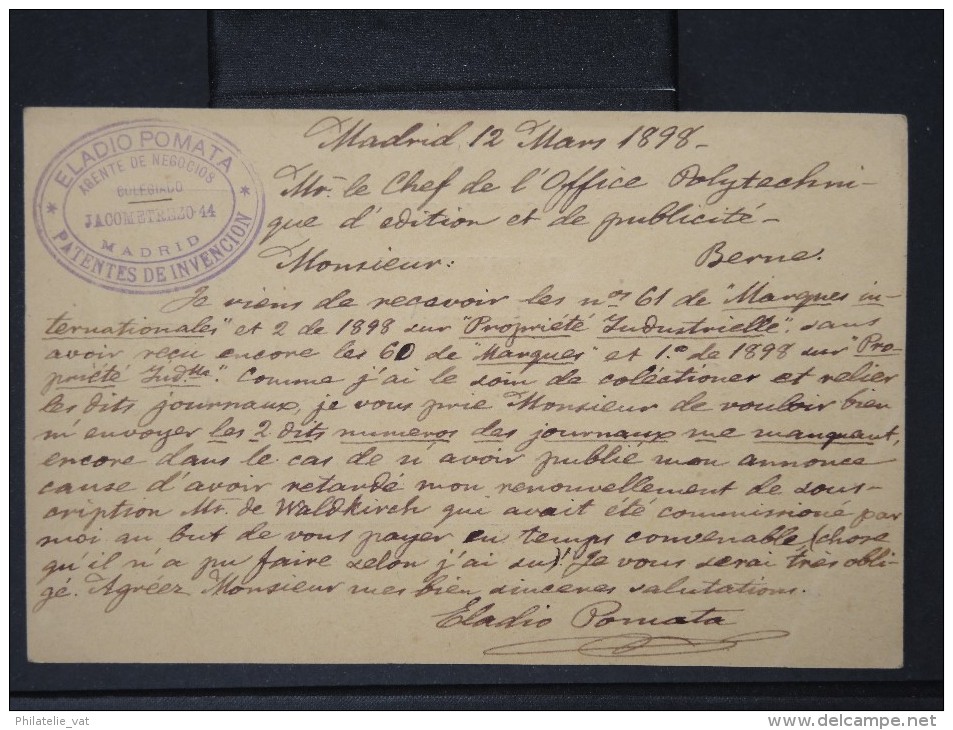 ELADIO POMATA
AGENTE DE NEGOCIOS
COLEGIADO
JACOMETREZO-44
MADRID
PATENTES DE INVENCION
Madrid 12 Mars 1898-
Mr. le Chef de l'Office Polytechni-
que d'edition et de publicité-
Monsieur: Berne.
Je viens de recevoir les nos 61 de "Marques in-
ternationales" et 2 de 1898 sur "Propriété Industrielle". sans
avoir reçu encore les 60 de "Marques" et 1.º de 1898 sur "Pro-
priété Ind.lle". Comme j'ai le soin de coléctioner et relier
les dits journaux, je vous prie Monsieur de vouloir bien
m'envoyer les 2 dits numeros des journaux me manquant,
encore dans le cas de n'avoir publié mon annonce
cause d'avoir retarde mon renouvellement de sous-
cription Mr. de Waldkirch qui avait été commissioné par
moi au but de vous payer en temps convenable (chose
qu'il n'a pu faire selon j'ai su)! Je vous serai très obli-
gé. Agréez Monsieur mes bien sinceres salutations.
Eladio Pomata
Philatelie_vat
delcampe.net